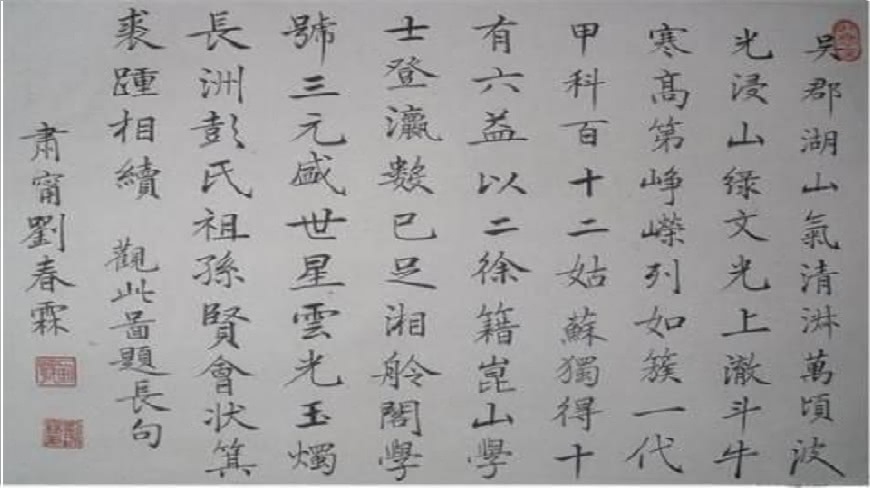 吳郡湖山氣清淑萬頃波
光浸山綠文光上澈斗牛
寒高第崢嶸列如簇一代
甲科百十二姑蘇獨得十
有六益以二徐籍崑山學
士登瀛數已足湘舲閣學
號三元盛世星雲光玉燭
長洲彭氏祖孫賢會狀箕
裘踵相續 觀此圖題長句
肅甯劉春霖